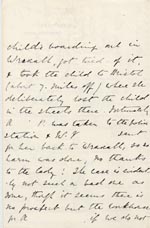 child's boarding out in
Wraxall, got tired of it,
& took the child to Bristol
(about 7 miles off) where she
deliberately lost the child
in the streets there. Fortunately
R was taken to the police
station & W. F sent
for her back to Wraxall, so no
harm was done, no thanks
to the lady! The case is evident-
ly not such a bad one as
some, though it seems there is
no prospect but the workhouse
for R if we do not